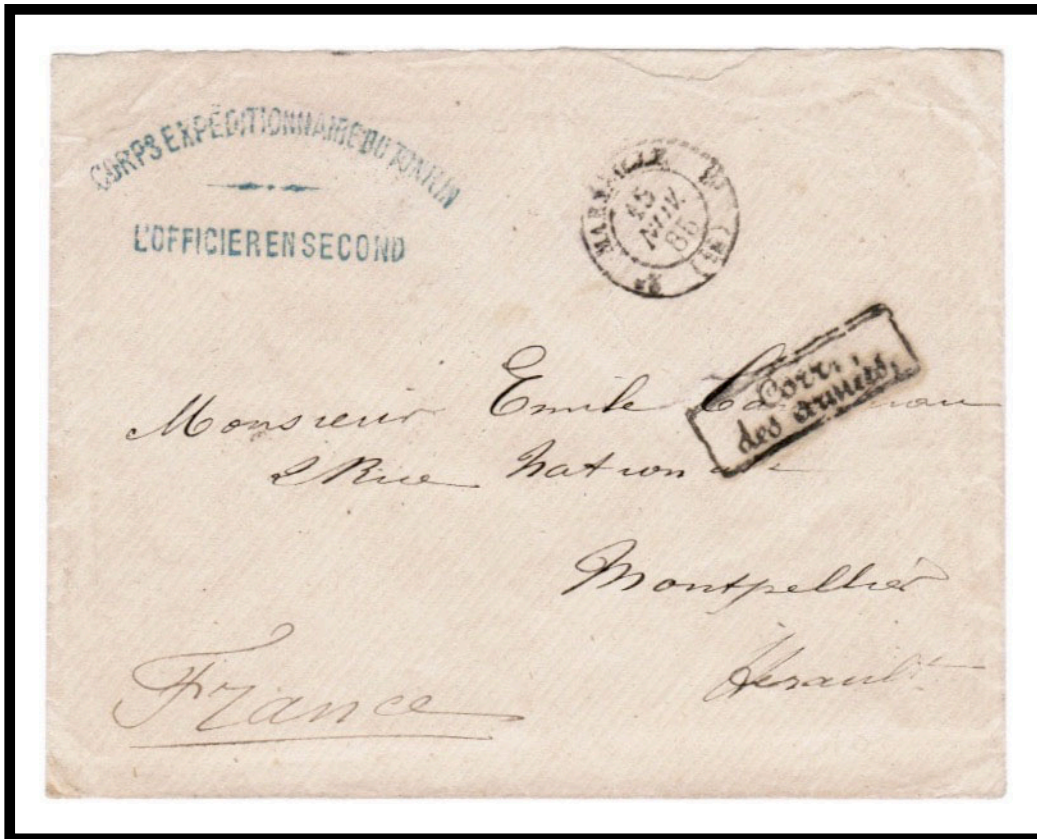 CORPS EXPÉDITIONNAIRE DU TONKIN
L'OFFICIER EN SECOND
MARSEILLE
15
86
Corr.
des armées.
Monsieur Emile
2 Rue Nationale
Montpellier
Hérault
France